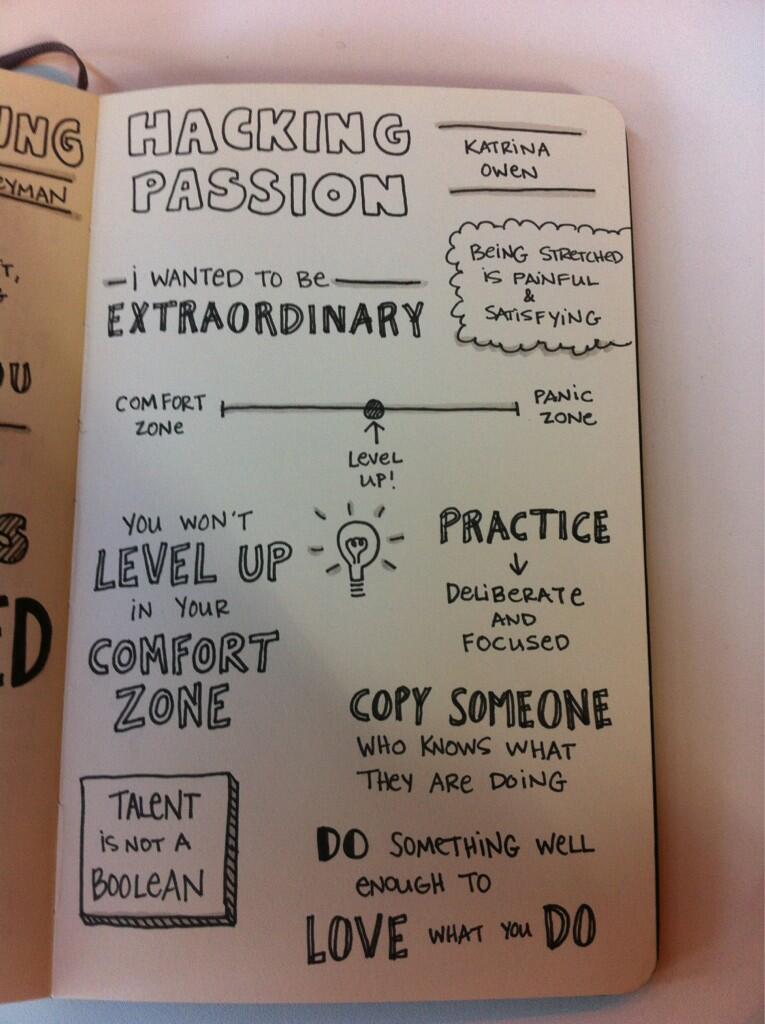 ING
EYMAN
T,
OU
S
ED
HACKING
PASSION
KATRINA
OWEN
BEING STRETCHED
IS PAINFUL
&
SATISFYING
I WANTED TO BE
EXTRAORDINARY
COMFORT
ZONE
PANIC
ZONE
LEVEL
UP!
YOU WON'T
LEVEL UP
IN YOUR
COMFORT
ZONE
PRACTICE
DELIBERATE
AND
FOCUSED
COPY SOMEONE
WHO KNOWS WHAT
THEY ARE DOING
TALENT
IS NOT A
BOOLEAN
DO SOMETHING WELL
ENOUGH TO
LOVE WHAT YOU DO